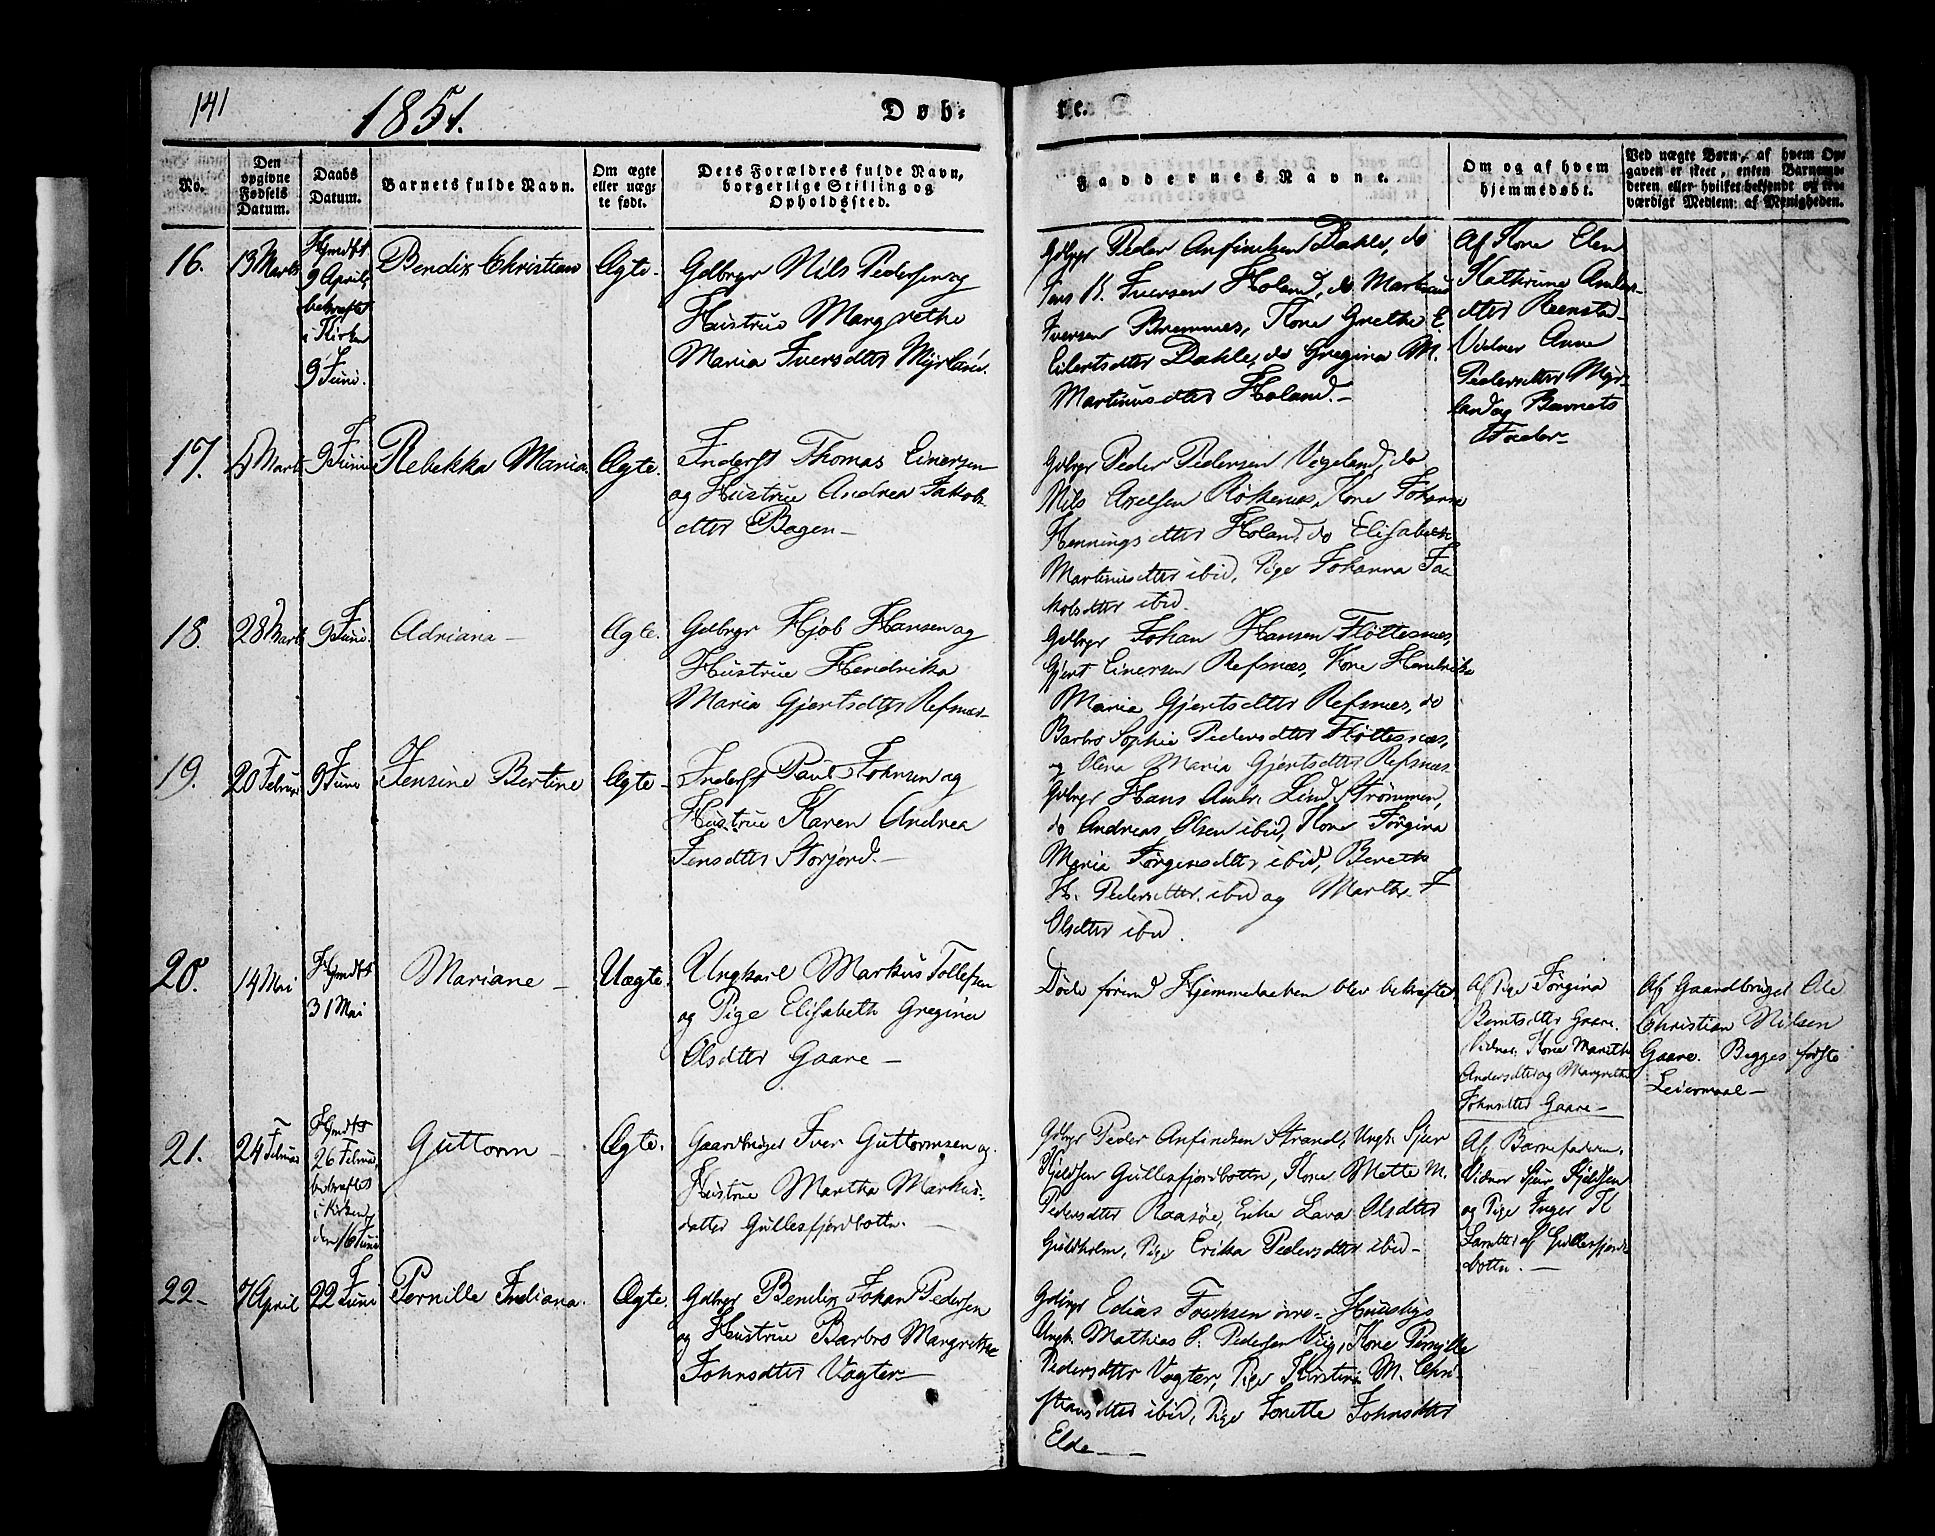 141
1851.
Døb-
te.
No.
Den opgivne Fødsels Datum.
Daabs Datum.
Barnets fulde Navn.
Om ægte eller uægte født.
Dets Forældres fulde Navn, borgerlige Stilling og Opholdssted.
Faddernes Navne.
Om og af hvem hjemmedøbt.
Ved uægte Børn, af hvem Opgaven er skeet, enten Barnemoderen eller hvilket bekjendt og troværdigt Medlem af Menigheden.
16.
13 Marts
Hjmdbt
9 April,
bekræftet
i Kirken
9 Juni.
Bendix Christian
Ægte.
Gdbrgr Nils Pedersen og
Hustrue Margrethe
Maria Iversdtter Myrland.
Gdbrgr Peder Anfindsen Dahle, do
Jens B. Iversen Holand, do Martinus
Iversen Bremnes, Kone Grethe E
Eilertsdtter Dahle, do Gregina M.
Martinusdtter Holand.
Af Kone Elen
Kathrine
dtter Reensted
Vidner Anne
Pedersdtter Myr-
land og Barnets
Fader
17.
4 Marts
9 Juni
Rebekka Maria.
Ægte.
Inderst Thomas Einersen
og Hustrue Andrea Jakobs
dtter Bogen
Gdbrgr Peder Pedersen Vigeland, do
Nils Axelsen Røkenes, Kone Johanna
Hennings dtter Holand, do Elisabeth
Martinusdtter ibid, Pige Johanna Ja-
kobsdtter ibid.
18.
28 Marts
9 Juni.
Adriana
Ægte.
Gdbrgr Hjob Hansen og
Hustrue Hendrika
Maria Gjertsdtter Refsnes
Gdbrgr Johan Hansen Fløttesnæs,
Gjert Einersen Refsnæs, Kone Hendrika
Maria Gjertsdtter Refsnæs, do
Barbro Sophie Pedersdtter Fløttesnæs,
og Olena Maria Gjertsdtter Refsnæs
19.
20 Februar
9 Juni
Jensine Bertine
Ægte
Inderst Paul Johnsen og
Hustrue Karen Andrea
Jensdtter Storjord.
Gdbrgr Hans Ambr. Lind Strømmen,
do Andreas Olsen ibid, Kone Jørgina
Maria Jørgensdtter ibid, Bereth
H. Pedersdtter ibid og Martha J
Olsdtter ibid.
20.
14 Mai
Hjmdbt
31 Mai
Mariane
Uægte.
Ungkarl Markus Tollefsen
og Pige Elisabeth Gregina
Olsdtter Gaare
Døde førend Hjemmedaaben blev bekræftet
Af Pige Jørgina
Berntsdtter Gaare.
Vidner. Kone Mareth
Andersdtter og Margrethe
Johnsdtter Gaare
Af Gaardbruger Ole
Christian Nilsen
Gaare. Begges første
Leiermaal
21.
24 Februar
Hjmdbt
26 Februar,
bekræftet
i Kirken
den 16 Juni
Guttorm
Ægte.
Gaardbruger Iver Guttormsen og
Hustrue Martha Markus-
datter Gullesfjordbotn.
Gdbrgr Peder Anfindsen Strand, Ungk. Sjur
Kjeldsen Gullesfjordbotn, Kone Mette M.
Pedersdtter Raasøe, Enke Lava Olsdtter
Guldholm, Pige Erika Pedersdtter ibid
Af Barnefaderen.
Vidner Sjur Kjeldsen
og Pige Inger Kl
Larsdtter af Gullesfjord-
botn.
22
7 April
22 Juni
Pernille Indiana.
Ægte.
Gdbrgr Bendix Johan Pedersen
og Hustrue Barbro Margrethe
Johnsdtter Vogter
Gdbrgr Edias Husebye
Ungk. Mathias P. Pedersen Viig, Kone Pernille
Pedersdtter Vogter, Pige Kirstina M. Chri-
stiansdtter ibid, Pige Jonette Johnsdtter
Elde